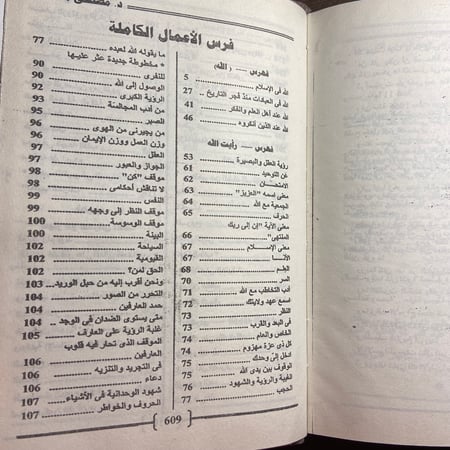 د. مصطفى
فهرس الأعمال الكاملة
فهرس — (الله)
الله فى الإسلام 5
الله فى العبادات منذ فجر التاريخ 27
الله عند أهل العلم والفكر 41
الله عند الذين أنكروه 46
فهرس — رأيت الله
رؤية العقل والبصيرة 53
عن التوحيد 61
الامتحان 62
معنى اسمه "العزيز" 63
الجمعية مع الله 64
الحرف 65
معنى الآية "إن إلى ربك
المنتهى" 66
معنى الإسلام 67
الأنا 67
العلم 68
السر 70
أدب التخاطب مع الله 71
اسمع عهد ولايتك 72
النظر 73
فى البعد والقرب 73
الخاص والعام 74
كل ذى عزة مهزوم 74
ادخل إلى وحدك 75
الوقوف بين يدى الله 75
الغيبة والرؤية والشهود 76
الحجب 77
ما يقوله الله لعبده 77
* مخطوطة جديدة عثر عليها
للنفرى 90
الوصول إلى الله 90
الرؤية الكبرى 92
من أدب المجالسة 93
الصبر 95
من يجيرنى من الهوى 96
وزن العمل ووزن الإيمان 96
العقل 97
الجواز والعبور 97
موقف "كن" 98
لا تناقش أحكامى 98
النفس 99
موقف النظر إلى وجهه 99
موقف الوسوسة 100
البينة 100
السياحة 102
القيومية 102
الحق لمن؟ 102
ونحن أقرب إليه من حبل الوريد 103
التحرر من الصور 104
حمد العارفين 104
متى يستوى الضدان فى الوجد 104
غلبة الرؤية على العارف 105
الموقف الذى تحار فيه قلوب
العارفين 106
فى التجريد والتنزيه 106
دعاء 106
شهود الوحدانية فى الأشياء 107
الحروف والخواطر 107
609